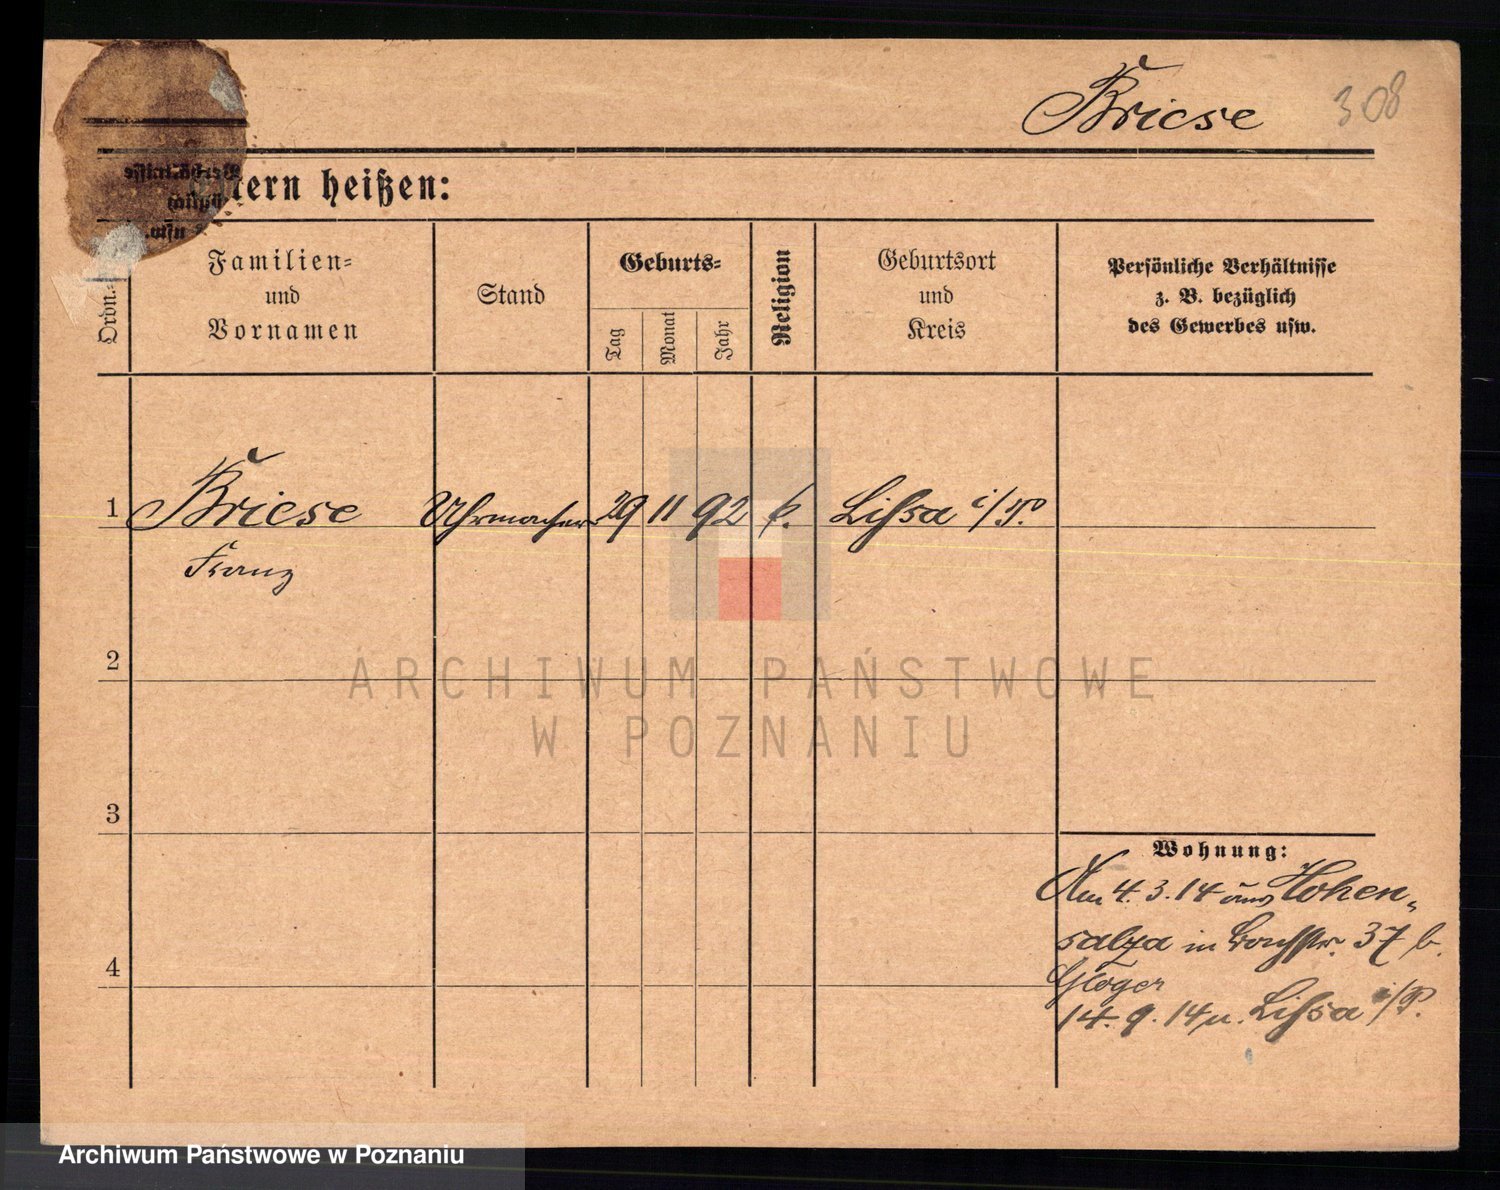 Briese 308
tern heißen:
Ordn.=
Familien=
und
Vornamen
Stand
Geburts=
Tag
Monat
Jahr
Religion
Geburtsort
und
Kreis
Persönliche Verhältnisse
z. B. bezüglich
des Gewerbes usw.
1 Briese Uhrmacher 29 11 92 k. Lissa i/P.
Franz
2
3
4
Wohnung:
Am 4.3.14 aus Hohen=
salza in 37 b.
Gloger
14.9.14 n. Lissa i/P.
ARCHIWUM PAŃSTWOWE
W POZNANIU
Archiwum Państwowe w Poznaniu